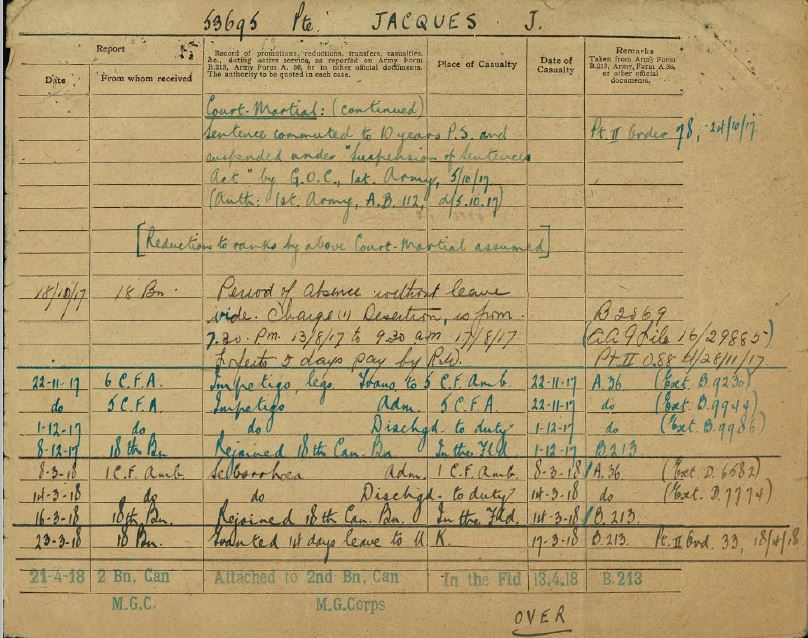 53695 Pte. JACQUES J.
Report
Record of promotions, reductions, transfers, casualties, &c., dating active service, as reported on Army Form B.213, Army Form A. 36, or in other official documents. The authority to be quoted in each case.
Place of Casualty
Date of Casualty
Remarks
Taken from Army Form B.213, Army Form A.36, or other official documents.
Date
From whom received
Court-Martial: (continued)
Sentence commuted to 10 years P.S. and Pt. II Order 78, 24/10/17
suspended under "Suspension of Sentences
Act" by G.O.C., 1st. Army, 5/10/17
(Auth: 1st. Army, A.B. 112, d/5.10.17)
[Reduction to ranks by above Court-Martial assumed]
18/10/17 18 Bn. Period of Absence without leave
vide. Charge (1) Desertion, is from B 2069
7.30. Pm. 13/8/17 to 9.30 am 17/8/17 (AAG File 16/29885)
Forfeits 5 days pay by R.W. Pt II 28/11/17
22-11-17 6 C.F.A. Impetigo, legs. Trans, to 5 C.F. Amb. 22-11-17 A.36 (Ext. B.9230)
do 5 C.F.A. Impetigo Adm. 5 C.F.A 22-11-17 do (Ext. B.9944)
1-12-17 do do Dischgd. to duty 1-12-17 do (Ext. B.9986)
8-12-17 18th Bn. Rejoined 18th Can. Bn In the Fld 1-12-17 B.213
8-3-18 1 C.F. Amb. Seborrhea Adm. 1 C.F. Amb. 8-3-18 A.36 (Ext. D.6582)
14-3-18 do do Dischgd. to duty 14-3-18 do (Ext. D.7774)
16-3-18 18th. Bn. Rejoined 18th Can. Bn. In the Fld. 14-3-18 B.213.
23-3-18 18 Bn. Granted 14 days leave to U.K. 17-3-18 B.213. Pt. II Ord. 33, 18/4/18
21-4-18 2 Bn, Can Attached to 2nd Bn, Can In the Fld 13.4.18 B.213
M.G.C. M.G.Corps
OVER